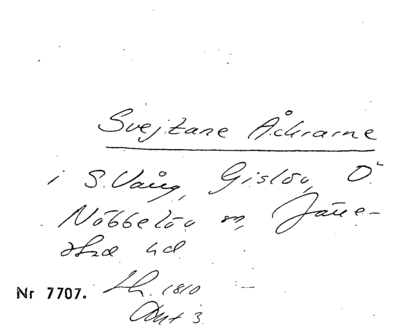 Svejtane Åckrarne
i S. Vång, Gislöv, Ö.
Nöbbelöv sn, Järre-
stad hd
Nr 7707. Lh. 1810
Akt 3.